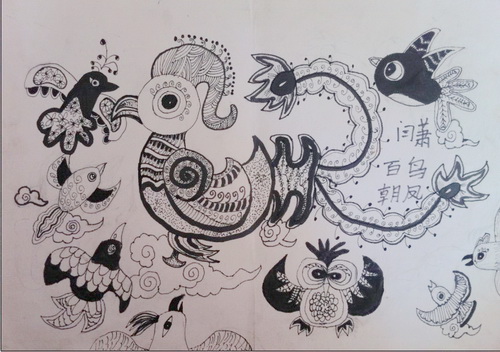 闫萧
百鸟
朝凤